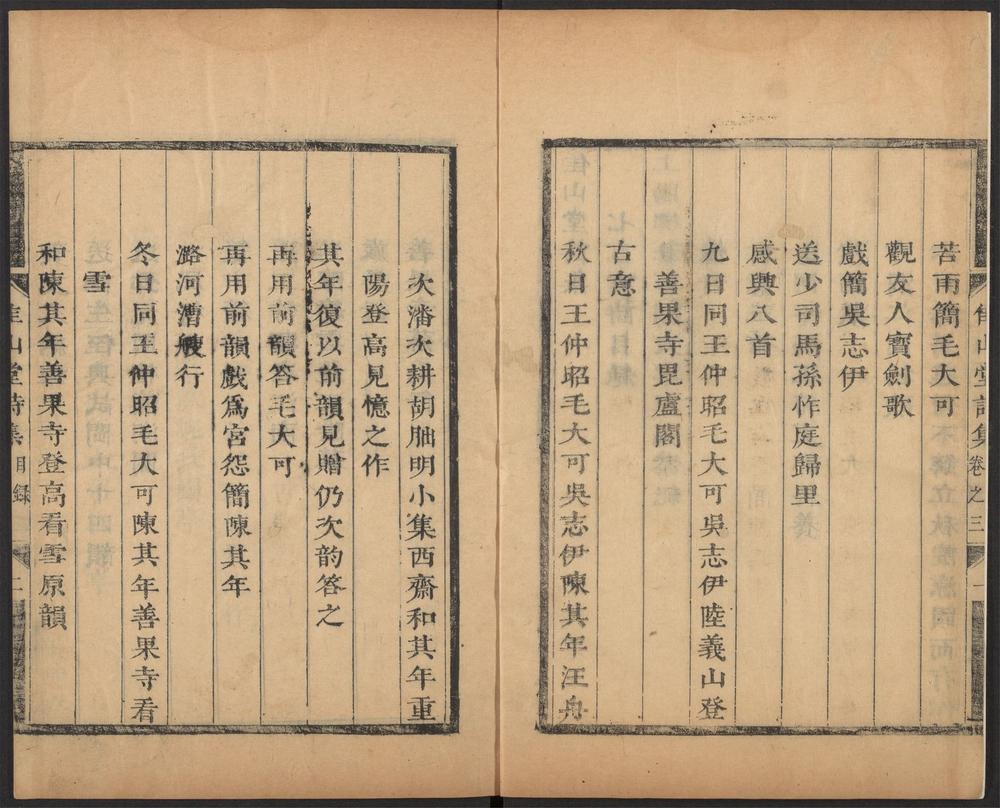 佳山堂詩集卷之三 一
苦雨簡毛大可
觀友人寶劍歌
戲簡吳志伊
送少司馬孫怍庭歸里
感興八首
九日同王仲昭毛大可吳志伊陸義山登
善果寺毘盧閣
古意
秋日王仲昭毛大可吳志伊陳其年汪舟
次潘次耕胡朏明小集西齋和其年重
陽登高見憶之作
其年復以前韻見贈仍次韵答之
再用前韻答毛大可
再用前韻戲爲宮怨簡陳其年
潞河漕艘行
冬日同王仲昭毛大可陳其年善果寺看
雪
和陳其年善果寺登高看雪原韻
佳山堂詩集目錄 二